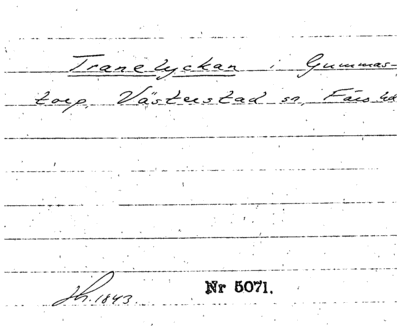 Tranelyckan i Gummas-
torp, Västerstad sn, Färs hd
Lh. 1843. Nr 5071.